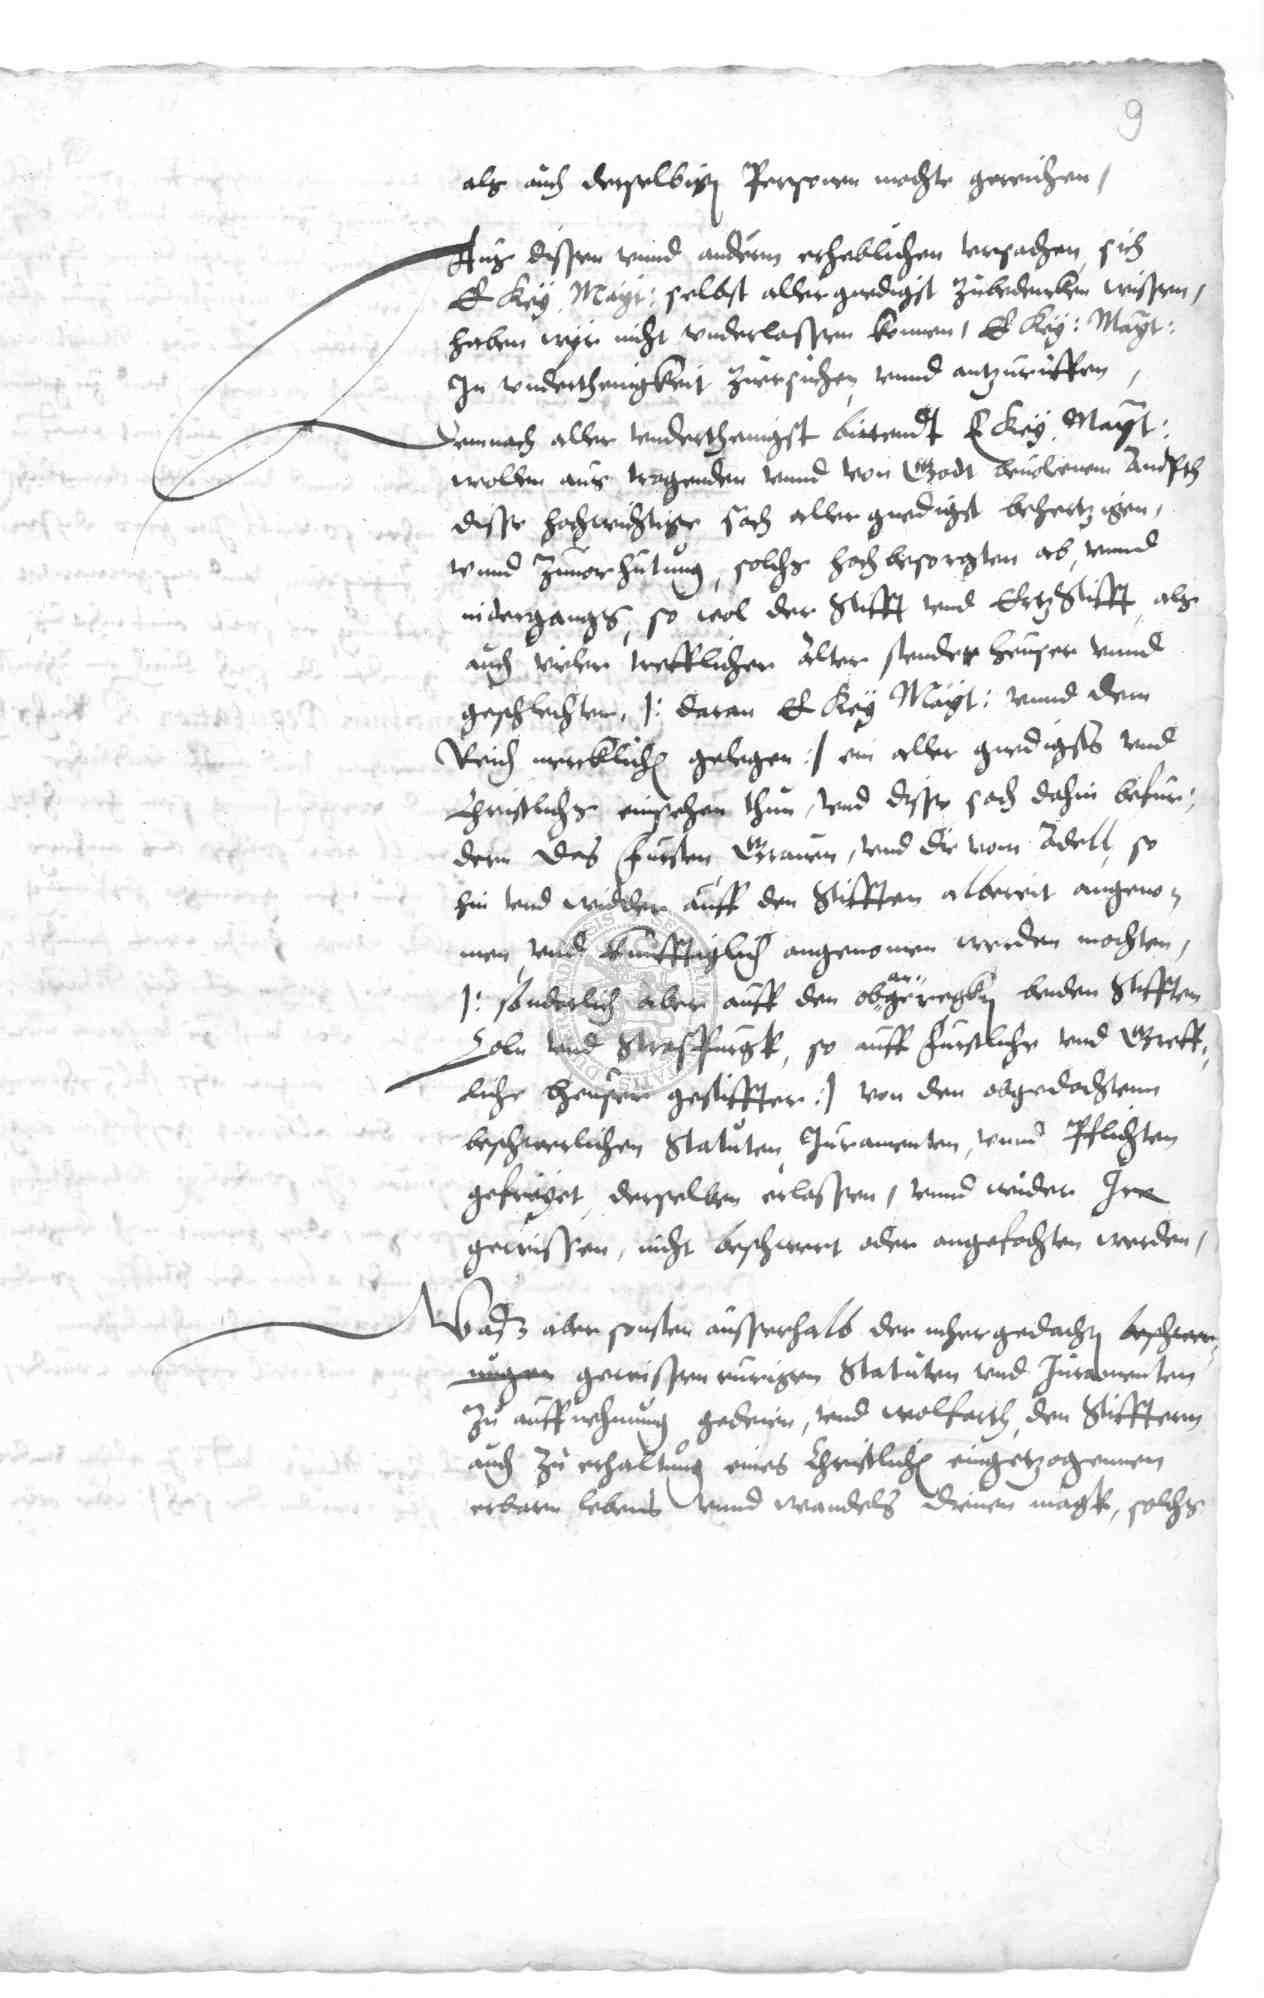 9
als auch derselbigen Personen mochte gereichen,
Aus dissen vnnd andern erheblichen vrsachen, sich
E Key. Mayt: selbst aller gnedigst zubedencken wissen,
haben wyr nicht vnderlassen konnen, E Key: Mayt:
In vnderthenigkeit zuersuchen, vnnd antzuruffen,
Demnach aller vnderthenigst bittendt E Key. Mayt:
wollen aus tragenden vnnd von Godt beuolenem Ampt
disse hochwichtige sach aller gnedigst behertzigen,
vnnd zuuorhutung, solchs hochbesorgten ab, vnnd
nidergangs, so wol der Stifft vnd Ertzstifft, als
auch vieler trefflicher Alter stender heuser vnnd
geschlechter, |: daran E Key Mayt: vnnd dem
Reich mercklich gelegen :| ein aller gnedigsts vnd
Christlichs einsehen thun, vnd disse sach dahin befur,
dern das Fursten, Grauen, vnd die vom Adell, so
hin vnd widder auff den Stifften albereit angeno,
men, vnd kunfftiglich angenomen werden mochten,
|: sonderlich aber auff den obangeregten beiden Stifften
Coln vnd Straspurgk, so auff Furstliche vnd Greff,
liche heuser gestifftet :| von den obgedachtenn
beschwerlichen Statuten, Juramenten, vnnd Pflichten
gefreyet, derselben erlassen, vnnd wider Ire
gewissen, nicht beschwert oder angefochten werden,
Was aber sonsten ausserhalb der mhergedachten beschwer,
nngen gewissenrurigen Statuten vnd Juramenten
zu auffnehmung gedeien, vnd wolfarth, den Stifftern
auch zu erhaltung eines Christlichen eingetzogennen
erbarn lebens vnnd wandels dienen magk, solchs